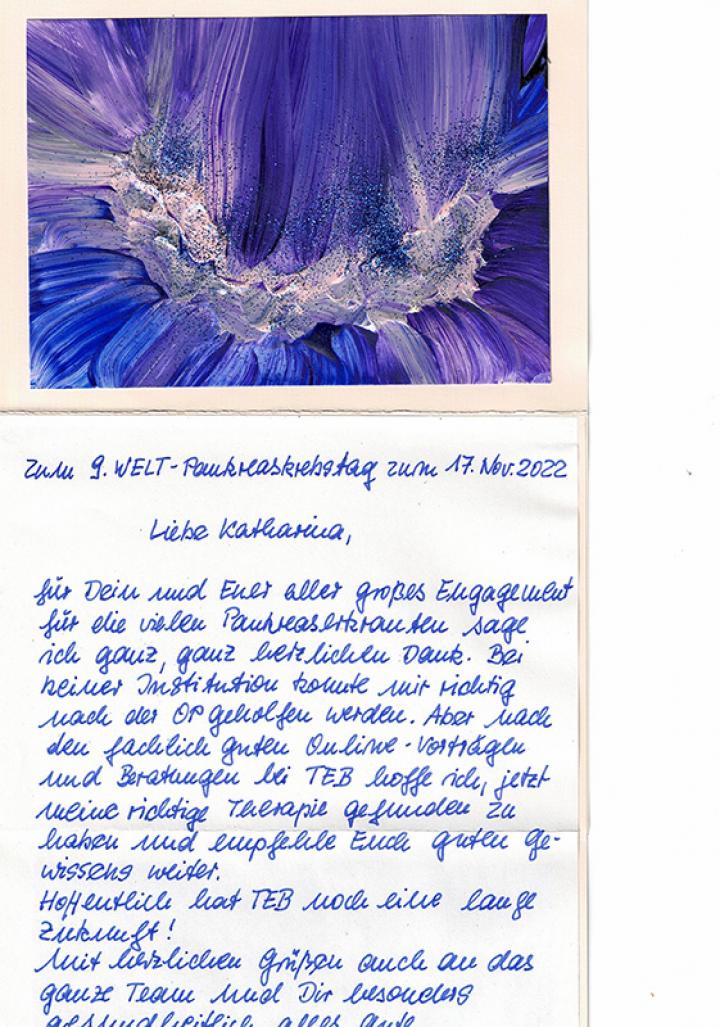 Zum 9. WELT-Pankreaskrebstag zum 17. Nov. 2022
Liebe Katharina,
für Dein und Euer aller großes Engagement
für die vielen Pankreaserkrankten sage
ich ganz, ganz herzlichen Dank. Bei
keiner Institution konnte mir richtig
nach der OP geholfen werden. Aber nach
den fachlich guten Online-Vorträgen
und Beratungen bei TEB hoffe ich, jetzt
meine richtige Therapie gefunden zu
haben und empfehle Euch guten Ge-
wissens weiter.
Hoffentlich hat TEB noch eine lange
Zukunft!
Mit herzlichen Grüßen auch an das
ganze Team und Dir besonders
gesundheitlich alles Gute